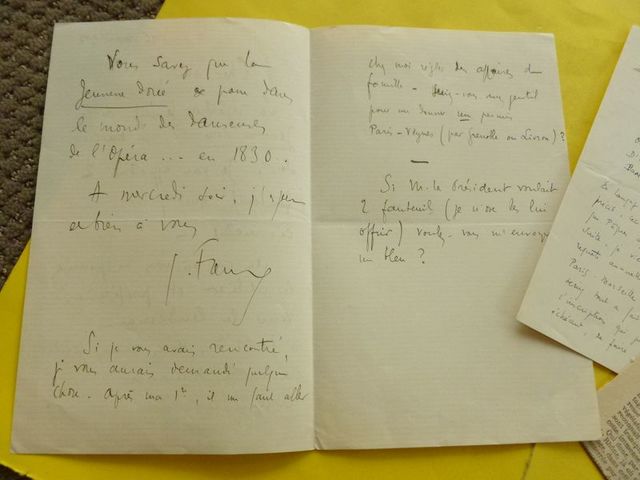 Vous savez que la
Jeunesse Dorée se passe dans
le monde des danseuses
de l'Opéra... en 1830.
A mercredi soir, j'espère
et bien à vous
Si je vous avais rencontré,
je vous aurais demandé quelque
chose. Après ma 1re, il me faut aller
chez moi régler des affaires de
famille - Seriez-vous assez gentil
pour me donner un permis
Paris-Veynes (par Grenoble ou Livron)?
Si M. le Président voulait
2 fauteuils (je n'ose les lui
offrir) voulez-vous m'envoyer
un bleu?
Paris Marseille